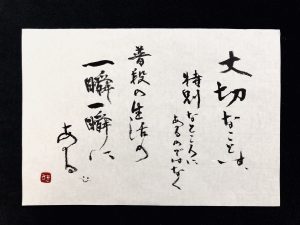 大切なことは、
特別なところに
あるのではなく
普段の生活の
一瞬一瞬に
ある